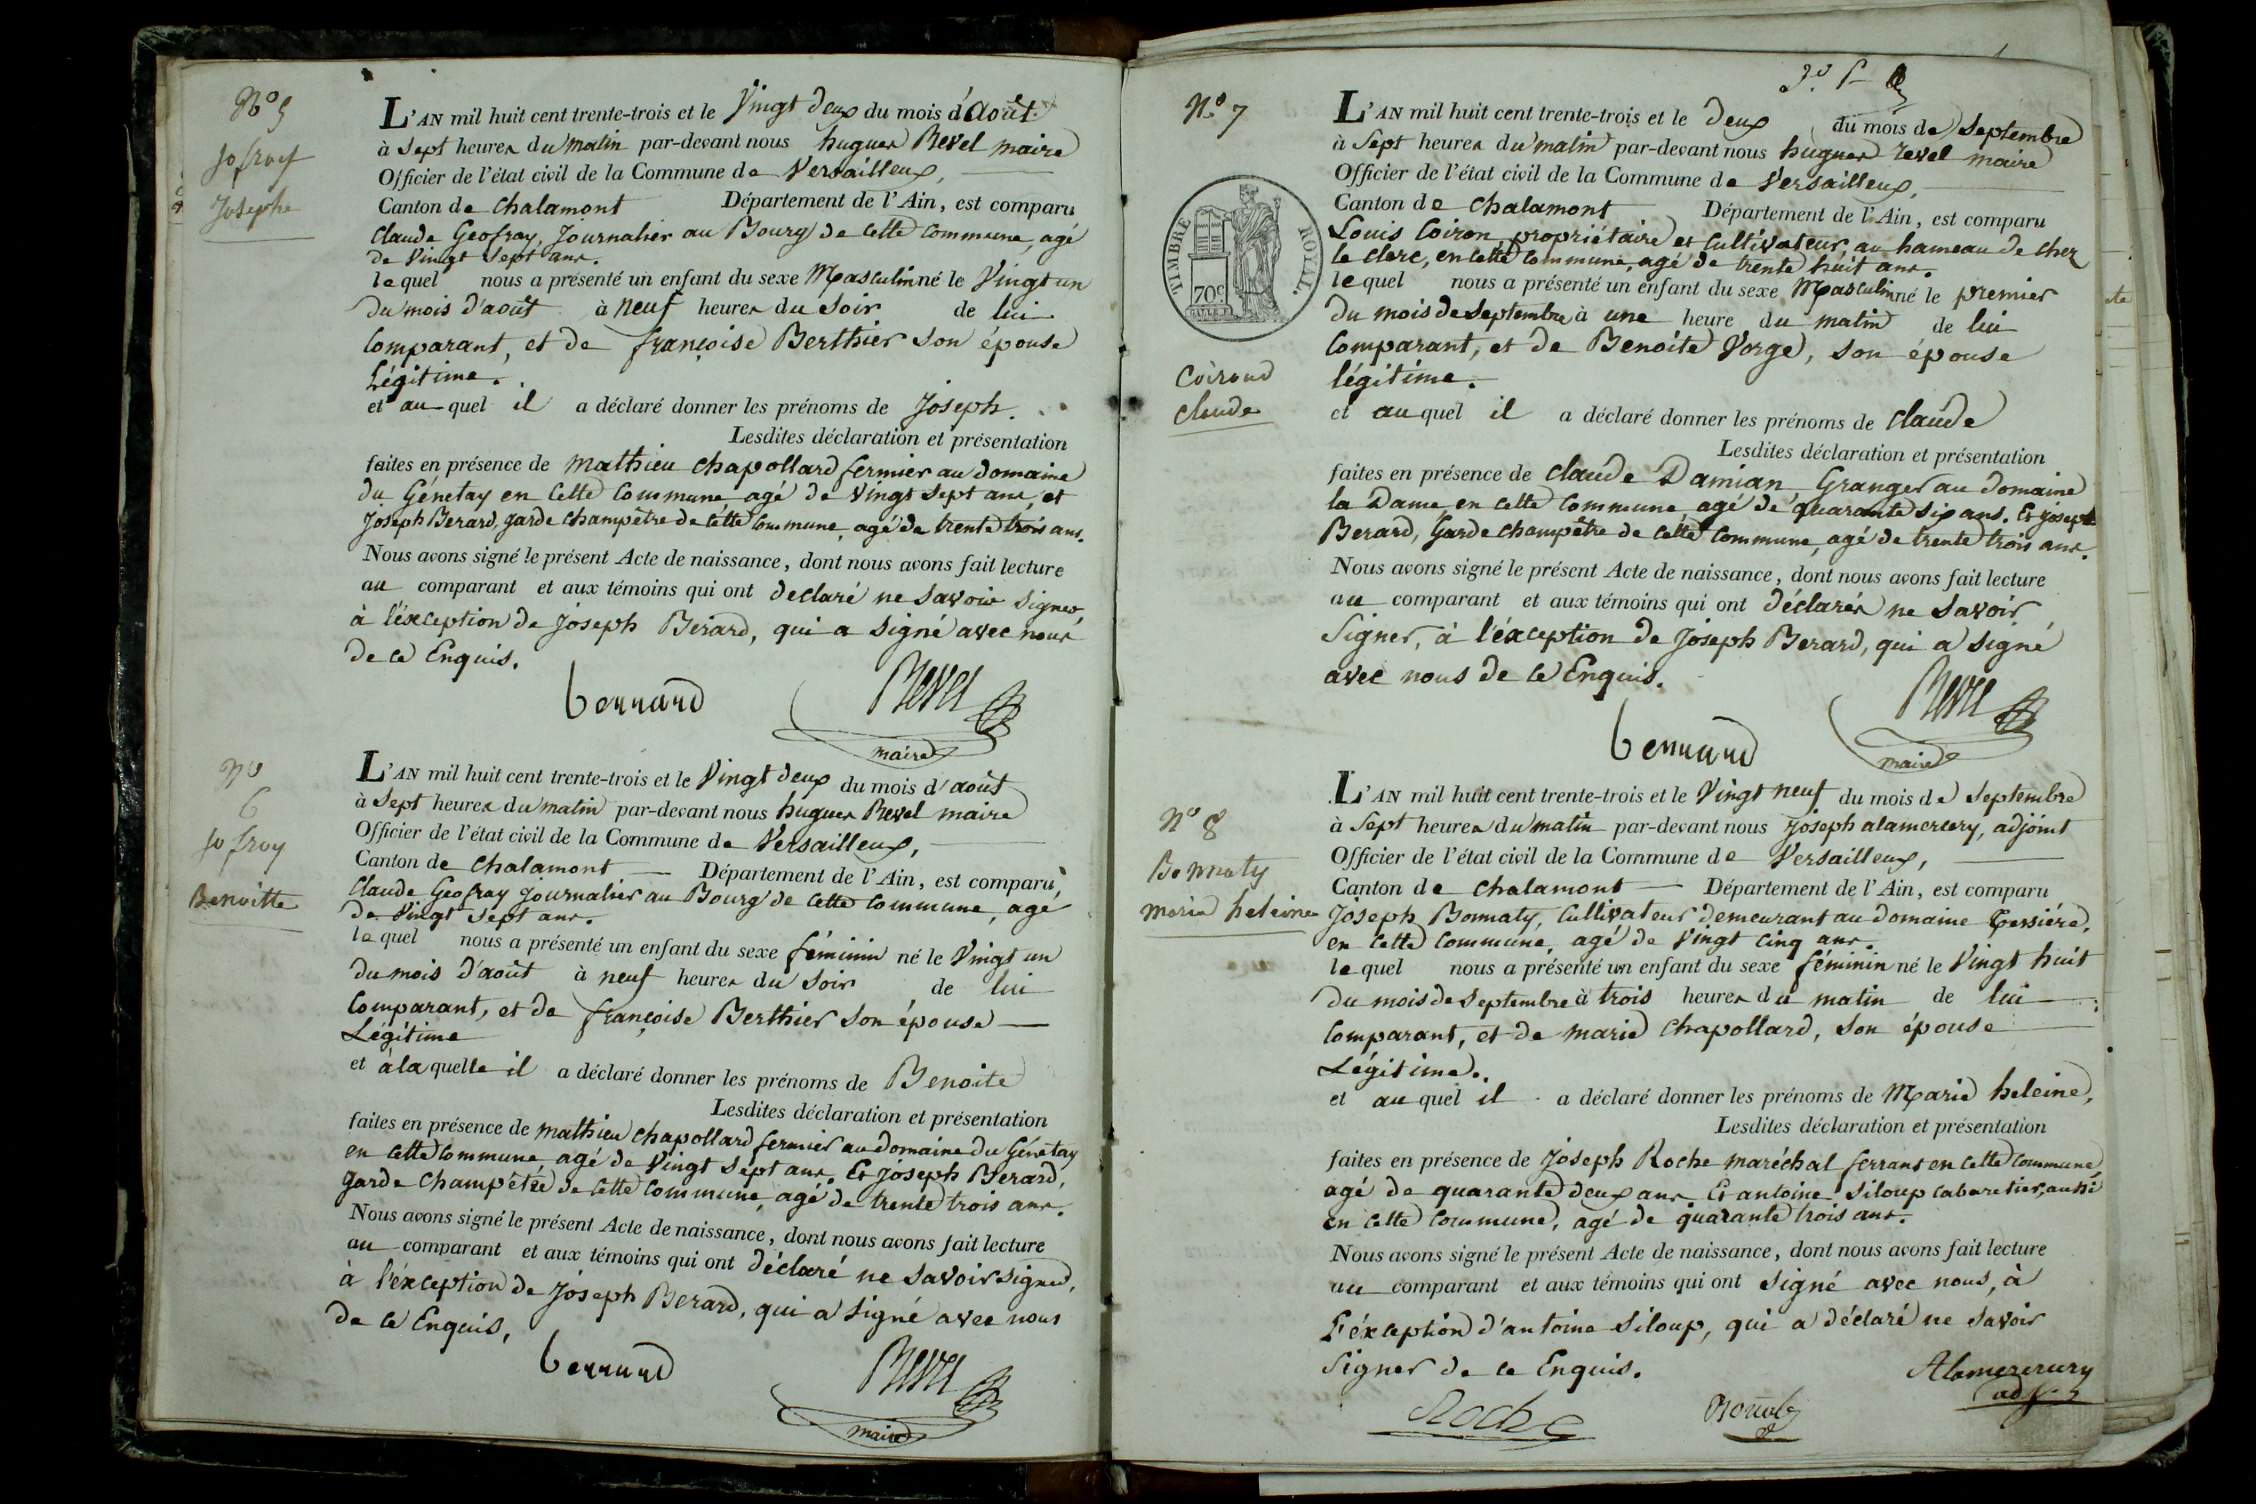 N.o 5
Jofroy
Josephe
L'AN mil huit cent trente-trois et le Vingt deux du mois d'août
à sept heures du matin par-devant nous hugues Revel maire
Officier de l'état civil de la Commune de Versailleux,
Canton de chalamont Département de l'Ain, est comparu
Claude Geofray, Journalier au Bourg de cette commune, agé
de Vingt Sept ans.
lequel nous a présenté un enfant du sexe Masculin né le Vingt un
du mois d'août à neuf heures du soir de lui
Comparant, et de françoise Berthier son épouse
Légitime.
et auquel il a déclaré donner les prénoms de Joseph.
Lesdites déclaration et présentation
faites en présence de Mathieu chapollard fermier au domaine
du Génetay en cette commune agé de vingt sept ans, et
Joseph Berard, garde champêtre de cette commune, agé de trente trois ans.
Nous avons signé le présent Acte de naissance, dont nous avons fait lecture
au comparant et aux témoins qui ont declaré ne savoir signer,
à l'éxception de Joseph Berard, qui a signé avec nous
de ce Enquis.
bernard Revel
maire
No
6
Jofroy
Benoitte
L'AN mil huit cent trente-trois et le Vingt deux du mois d'août
à sept heures du matin par-devant nous hugues Revel maire
Officier de l'état civil de la Commune de Versailleux,
Canton de chalamont Département de l'Ain, est comparu
Claude Geofray Journalier au Bourg de cette commune, agé
de Vingt sept ans.
lequel nous a présenté un enfant du sexe féminin né le Vingt un
du mois d'août à neuf heures du soir de lui
Comparant, et de françoise Berthier son épouse
Légitime
et à laquelle il a déclaré donner les prénoms de Benoite
Lesdites déclaration et présentation
faites en présence de mathieu chapollard fermier au domaine du Génetay
en cette commune agé de Vingt sept ans. Et Joseph Berard,
garde champêtre de cette commune, agé de trente trois ans.
Nous avons signé le présent Acte de naissance, dont nous avons fait lecture
au comparant et aux témoins qui ont déclaré ne savoir signer,
à l'éxception de Joseph Berard, qui a signé avec nous
de ce Enquis,
bernard Revel
maire
N.o 7
TIMBRE ROYAL.
70c
Coiroud
claude
L'AN mil huit cent trente-trois et le Deux du mois de Septembre
à Sept heures du matin par-devant nous hugues revel maire
Officier de l'état civil de la Commune de Versailleux,
Canton de chalamont Département de l'Ain, est comparu
Louis Coiron, propriétaire et Cultivateur, au hameau de chez
le clerc, en cette commune, agé de trente huit ans.
lequel nous a présenté un enfant du sexe Masculin né le premier
du mois de Septembre à une heure du matin de lui
Comparant, et de Benoite Vorge, son épouse
légitime.
et auquel il a déclaré donner les prénoms de claude
Lesdites déclaration et présentation
faites en présence de claude Damian Granger au domaine
la Dame en cette commune agé de quarante six ans. Et Joseph
Berard, Garde champêtre de cette commune, agé de trente trois ans.
Nous avons signé le présent Acte de naissance, dont nous avons fait lecture
au comparant et aux témoins qui ont déclarés ne savoir
Signer, à l'éxception de Joseph Berard, qui a signé
avec nous de ce Enquis.
bernard Revel
maire
No 8
Bonnaty
marie heleine
L'AN mil huit cent trente-trois et le Vingt neuf du mois de Septembre
à Sept heures du matin par-devant nous Joseph alamercery, adjoint
Officier de l'état civil de la Commune de Versailleux,
Canton de chalamont Département de l'Ain, est comparu
Joseph Bonnaty, Cultivateur demeurant au domaine Tersiére,
en cette commune, agé de Vingt cinq ans.
lequel nous a présenté un enfant du sexe féminin né le Vingt huit
du mois de Septembre à trois heures du matin de lui
Comparant, et de marie chapollard, son épouse
Légitime.
et auquel il a déclaré donner les prénoms de Marie heleine,
Lesdites déclaration et présentation
faites en présence de Joseph Roche maréchal ferrant en cette commune,
agé de quarante deux ans Et antoine Siloup cabaretier, aussi
en cette commune, agé de quarante trois ans.
Nous avons signé le présent Acte de naissance, dont nous avons fait lecture
au comparant et aux témoins qui ont signé avec nous, à
L'éxception d'antoine Siloup, qui a déclaré ne savoir
Signer de ce Enquis.
Alamercery
adj.
Roche